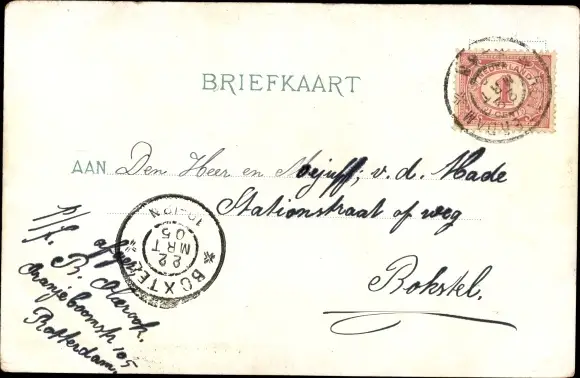 BRIEFKAART
NEDERLAND
1 CENT
AAN Den Heer en Mejuff; v. d. Made
Stationstraat of weg
Bokstel.
BOXTEL
22
MRT
05
10-12N
p/f.
afz
B.
Oranjeboomstr 105
Rotterdam,